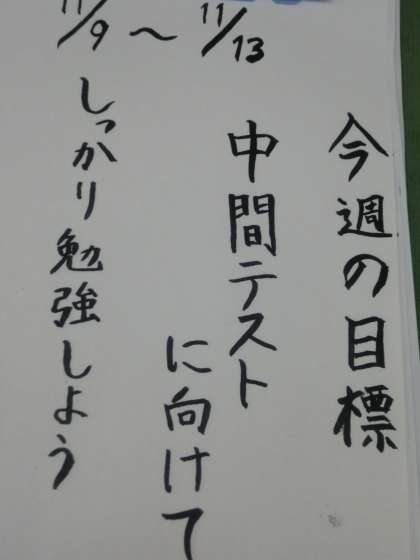 11/9～11/13
今週の目標
中間テスト
に向けて
しっかり勉強しよう